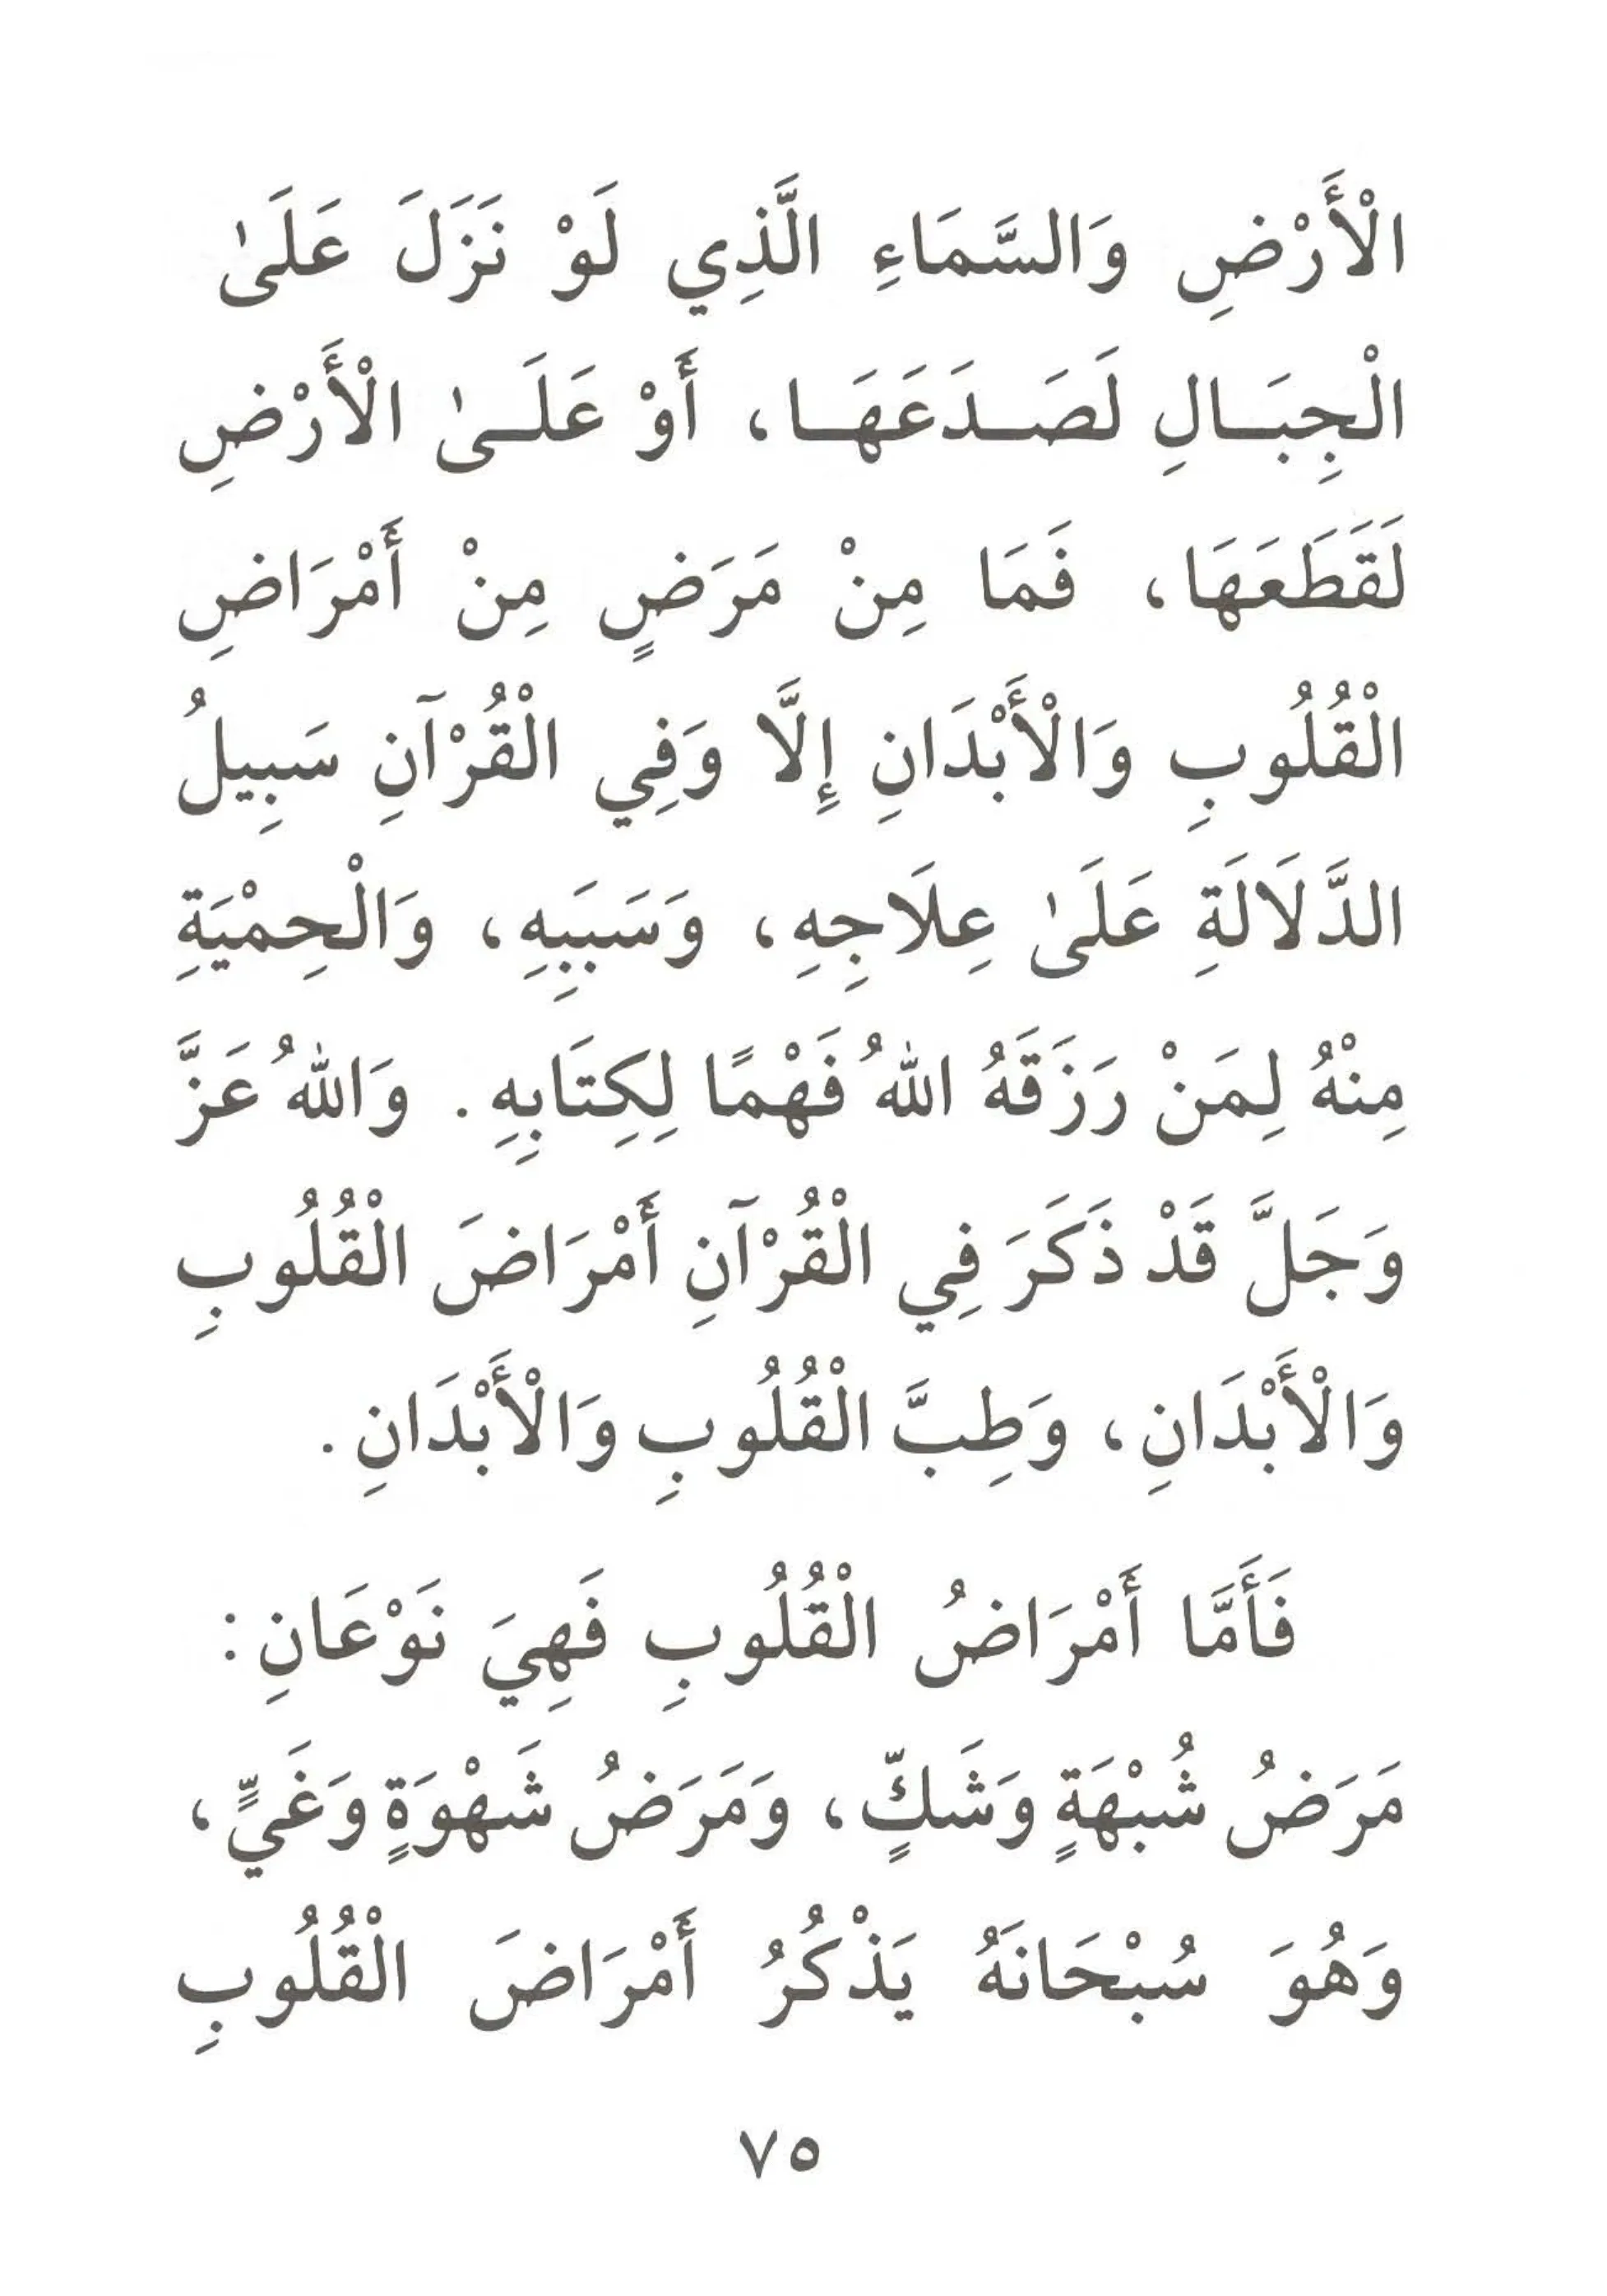 الْأَرْضِ وَالسَّمَاءِ الَّذِي لَوْ نَزَلَ عَلَىٰ
الْجِبَـالِ لَصَـدَعَهَـا، أَوْ عَلَـىٰ الْأَرْضِ
لَقَطَعَهَا، فَمَا مِنْ مَرَضٍ مِنْ أَمْرَاضِ
الْقُلُوبِ وَالْأَبْدَانِ إِلَّا وَفِي الْقُرْآنِ سَبِيلُ
الدَّلَالَةِ عَلَىٰ عِلَاجِهِ، وَسَبَبِهِ، وَالْحِمْيَةِ
مِنْهُ لِمَنْ رَزَقَهُ اللهُ فَهْمًا لِكِتَابِهِ. وَاللهُ عَزَّ
وَجَلَّ قَدْ ذَكَرَ فِي الْقُرْآنِ أَمْرَاضَ الْقُلُوبِ
وَالْأَبْدَانِ، وَطِبَّ الْقُلُوبِ وَالْأَبْدَانِ.
فَأَمَّا أَمْرَاضُ الْقُلُوبِ فَهِيَ نَوْعَانِ:
مَرَضُ شُبْهَةٍ وَشَكٍّ، وَمَرَضُ شَهْوَةٍ وَغَيٍّ،
وَهُوَ سُبْحَانَهُ يَذْكُرُ أَمْرَاضَ الْقُلُوبِ
٧٥